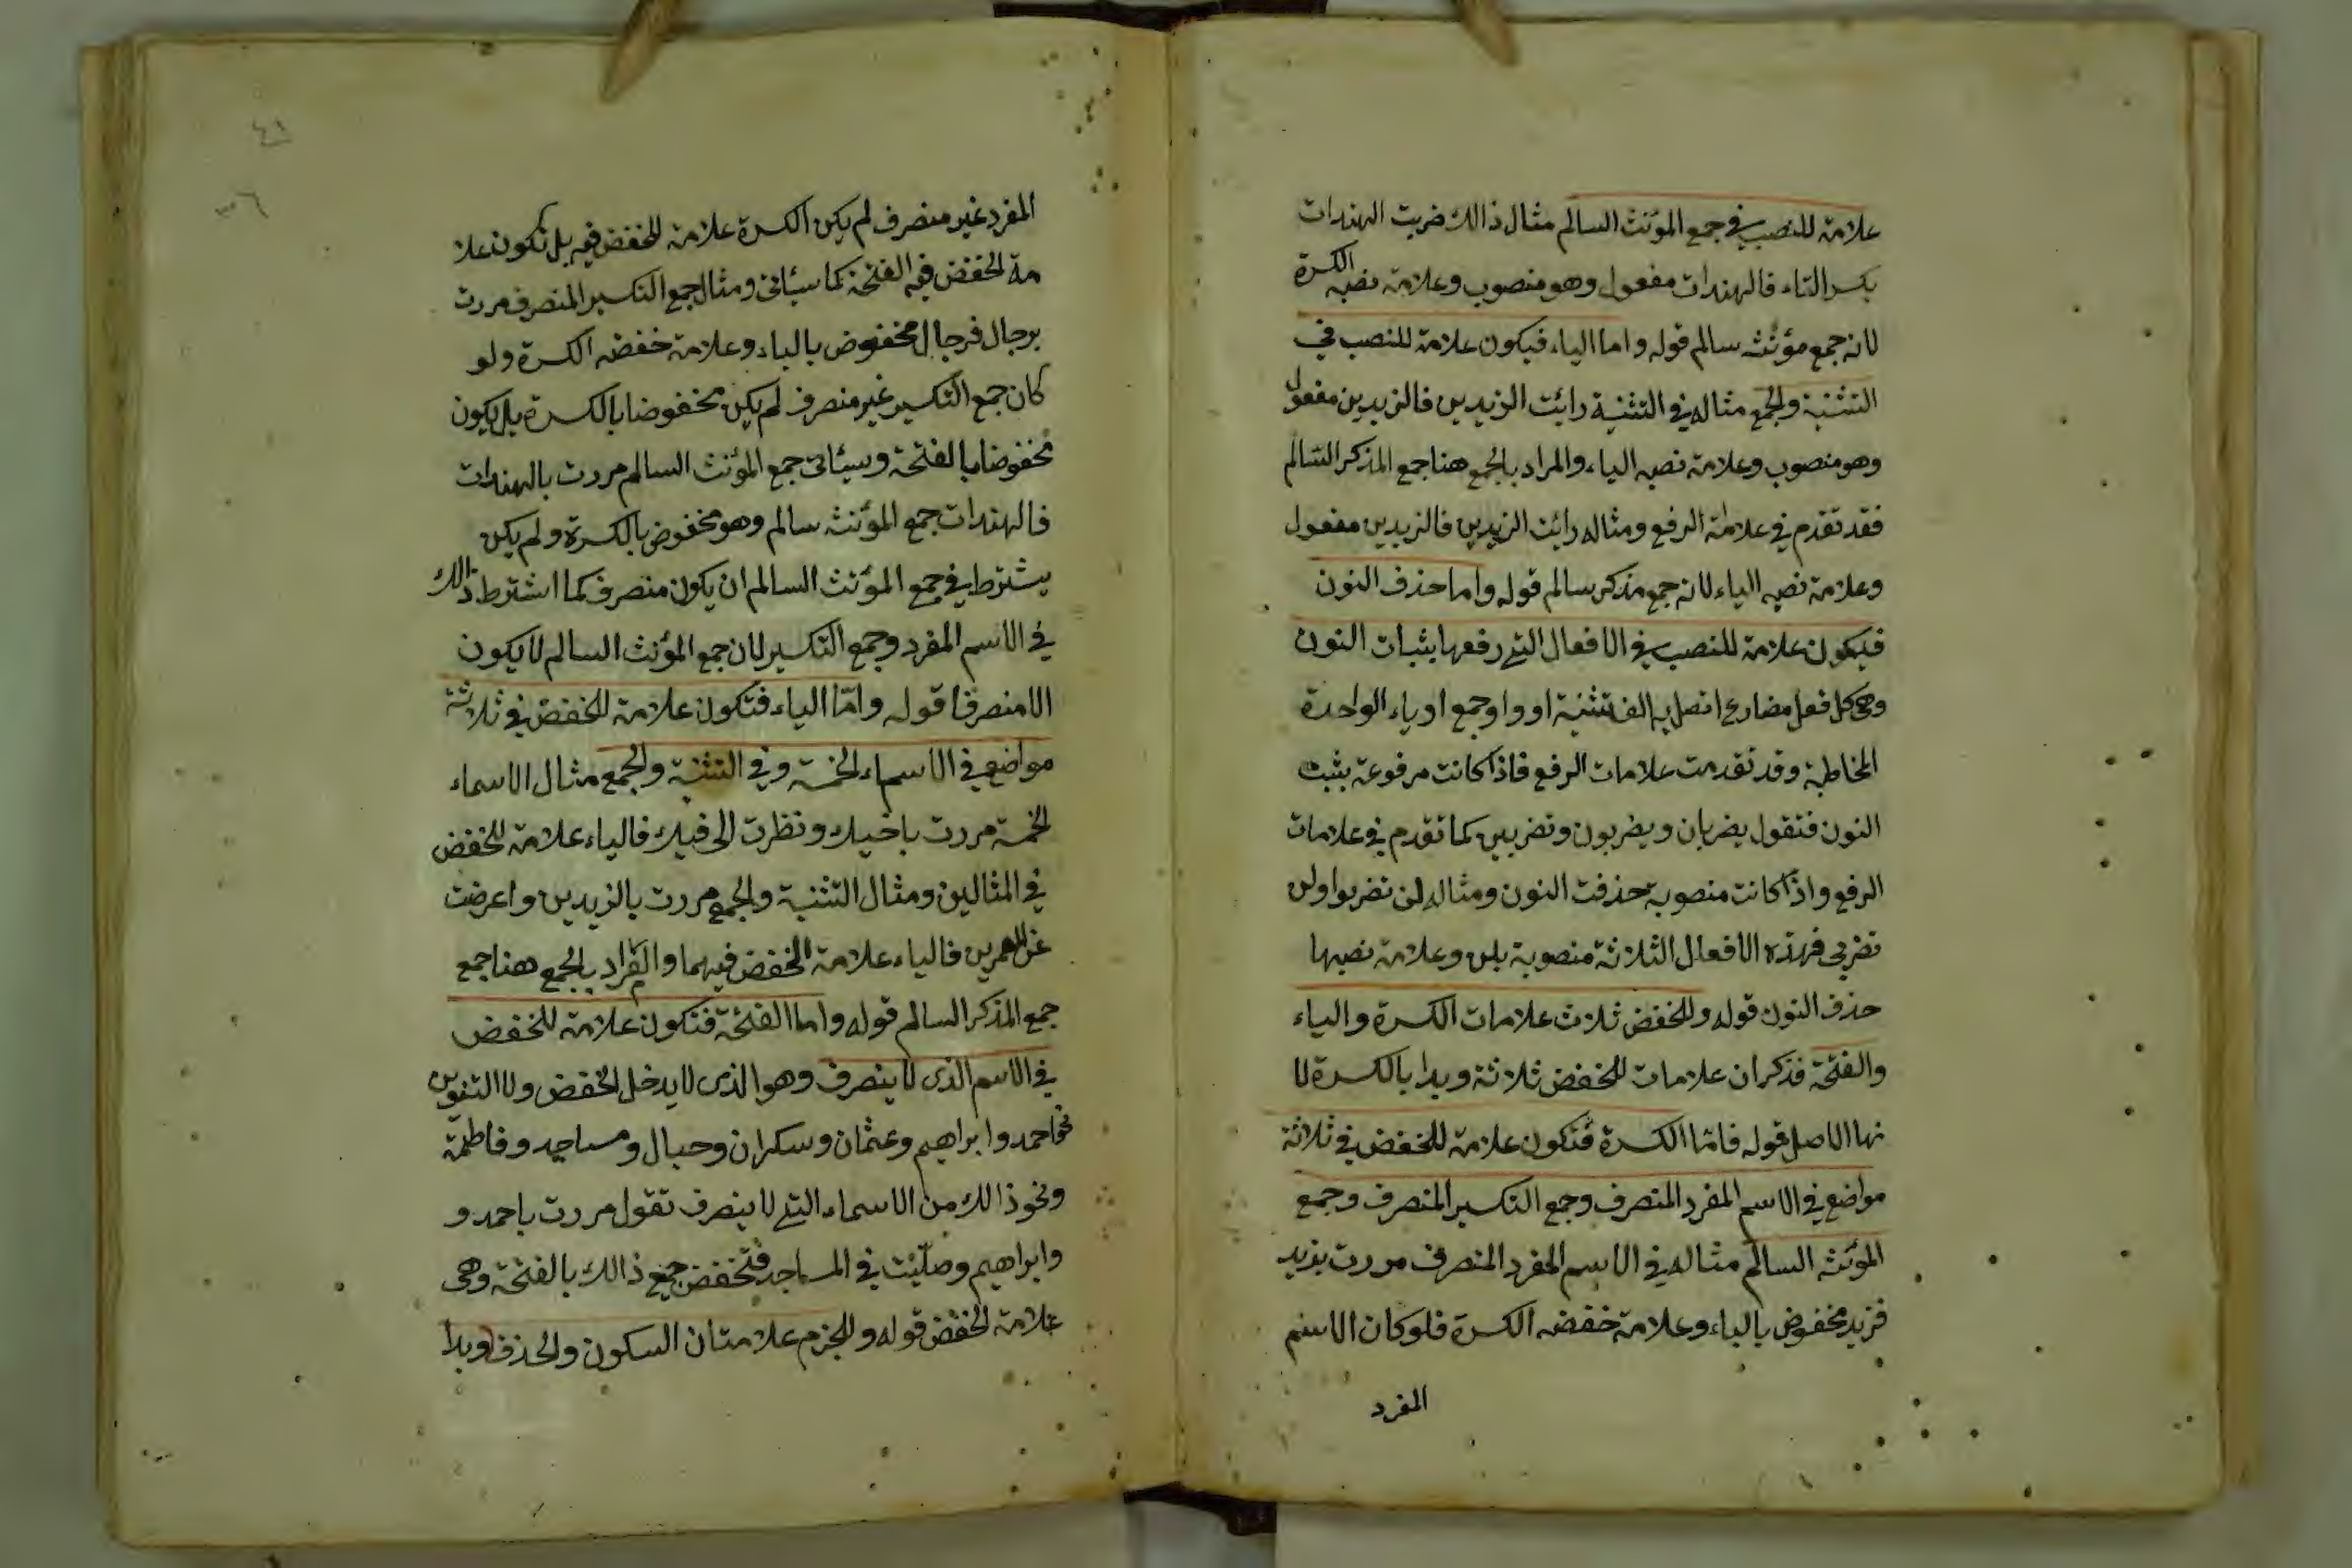 علامة للنصب في جمع المؤنث السالم مثال ذالك ضربت الهندات
بكسر التاء فالهندات مفعول وهو منصوب وعلامة نصبه الكسرة
لانه جمع مؤنث سالم قوله واما الياء فيكون علامة للنصب في
التثنية والجمع مثاله في التثنية رائت الزيدين فالزيدين مفعول
وهو منصوب وعلامة نصبه الياء والمراد بالجمع هنا جمع المذكر السالم
فقد تقدم في علامة الرفع ومثاله رائت الزيدين فالزيدين مفعول
وعلامة نصبه الياء لانه جمع مذكر سالم قوله واما حذف النون
فيكون علامة للنصب في الافعال التي رفعها بثبات النون
وهي كل فعل مضارع اتصل به الف تثنية او واو جمع او ياء الواحدة
المخاطبة وقد تقدمت علامات الرفع فاذا كانت مرفوعة بثبت
النون فتقول يضربان ويضربون وتضربين كما تقدم في علامات
الرفع واذا كانت منصوبة حذفت النون ومثاله لن تضربوا ولن
تضربي فهذه الافعال الثلاثة منصوبة بلن وعلامة نصبها
حذف النون قوله وللخفض ثلاث علامات الكسرة والياء
والفتحة فذكر ان علامات للخفض ثلاثة وبدا بالكسرة لا
نها الاصل قوله فاما الكسرة فتكون علامة للخفض في ثلاثة
مواضع في الاسم المفرد المنصرف وجمع التكسير المنصرف وجمع
المؤنث السالم مثاله في الاسم المفرد المنصرف مررت بزيد
فزيد مخفوض بالباء وعلامة خفضه الكسرة فلو كان الاسم
المفرد
٤١
٣٦
المفرد غير منصرف لم يكن الكسرة علامة للخفض فيه بل تكون علا
مة الخفض فيه الفتحة كما سيئاتى ومثال جمع التكسير المنصرف مررت
برجال فرجال مخفوض بالباء وعلامة خفضه الكسرة ولو
كان جمع التكسير غير منصرف لم يكن مخفوضا بالكسرة بل يكون
مخفوضا بالفتحة وسيئاتى جمع المؤنث السالم مررت بالهندات
فالهندات جمع المؤنث سالم وهو مخفوض بالكسرة ولم يكن
يشترط في جمع المؤنث السالم ان يكون منصرف كما اشترط ذالك
في الاسم المفرد وجمع التكسير لان جمع المؤنث السالم لا يكون
الا منصرفا قوله واما الياء فتكون علامة للخفض في ثلاثة
مواضع في الاسماء الخمسة وفي التثنية والجمع مثال الاسماء
الخمسة مررت باخيك ونظرت الى فيك فالياء علامة للخفض
في المثالين ومثال التثنية والجمع مررت بالزيدين واعرضت
عن العمرين فالياء علامة الخفض فيهما والمراد بالجمع هنا جمع
جمع المذكر السالم قوله واما الفتحة فتكون علامة للخفض
في الاسم الذى لا ينصرف وهو الذى لا يدخل الخفض ولا التنوين
نحو احمد وابراهيم وعثمان وسكران وحبال ومساجد وفاطمة
ونحو ذالك من الاسماء التي لا ينصرف تقول مررت باحمد و
وابراهيم وصليت في المساجد فتخفض جميع ذالك بالفتحة وهى
علامة الخفض قوله وللجزم علامتان السكون والحذف وبدا